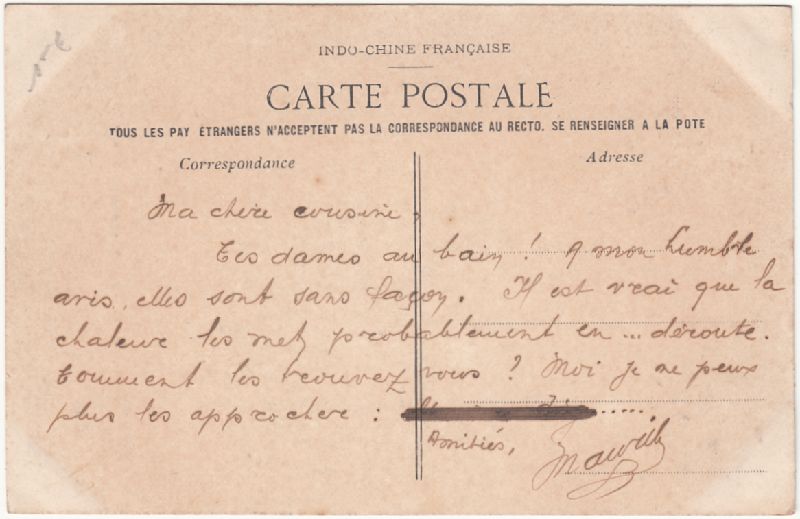 INDO-CHINE FRANÇAISE
CARTE POSTALE
TOUS LES PAY ÉTRANGERS N'ACCEPTENT PAS LA CORRESPONDANCE AU RECTO. SE RENSEIGNER A LA POTE
Correspondance
Adresse
Ma chère cousine,
Ces dames au bain ! A mon humble
avis, elles sont sans façon. Il est vrai que la
chaleur les met probablement en ... déroute.
Comment les trouvez vous ? Moi je ne peux
plus les approcher : ......
Amitiés,